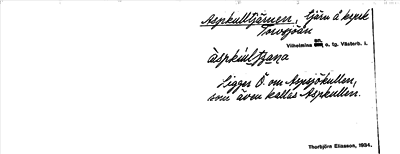 Aspkulltjärnen, tjärn å kronk
Torvsjöån
Vilhelmina sn o. tg. Västerb. l.
àspkùl̥tjæ̣ṇa
Ligger Ö. om Aspsjökullen,
som även kallas Aspkullen.
Thorbjörn Eliasson, 1934.